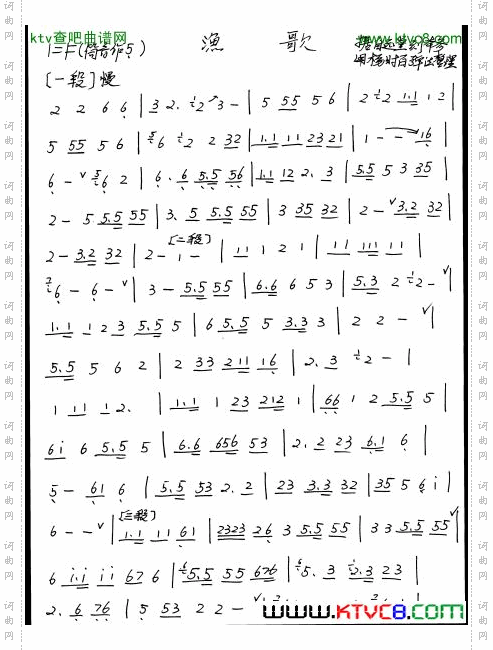 ktv查吧曲谱网 www.ktvc8.com
1=F(筒音作5)
渔 歌
[一段] 慢
2 2 6 6 | 3 2. 2 3 - | 5 55 5 6 | 2 2 1.1 1 2 |
5 55 5 6 | 6 2 2 32 | 1.1 11 23 21 | 1 - - 16 |
6 - 6 2 | 6. 6 5.5 56 | 1.1 12 2. 3 | 5.5 5 3 35 |
2 - 5 5.5 55 | 3. 5 5.5 55 | 3 35 32 | 2 - 3.2 32 |
2 - 3.2 32 | 2 - 1 - | [二段] 11 1 2 1 | 11 111 11 |
6 - 6 - | 3 - 5.5 55 | 6.6 6 5 3 | 5.3 2 2 - |
1.1 1 2 3 5.5 5 | 6 5.5 5 3.3 3 | 2 2 - |
5.5 5 6 2 | 2 33 211 16 | 2. 3 2 - |
1 11 12. | 1.1 1 23 212 1 | 66 1 2 5.5 5 |
6i 6 5.5 5 | 6.6 656 53 | 2. 2 23 6.1 6 |
5 - 61 6 | 5.5 53 2. 2 | 23 3.3 32 | 35 5 6 i |
6 - - | [三段] 1.1 11 61 | 2323 26 3 5.5 55 | 3 3 5.5 55 |
6 i.i ii 67 6 | 5.5 55 676 | 5. 3 2.3 23 |
2. 6 76 | 5 53 2 2 -
www.KTVC8.com
词曲网